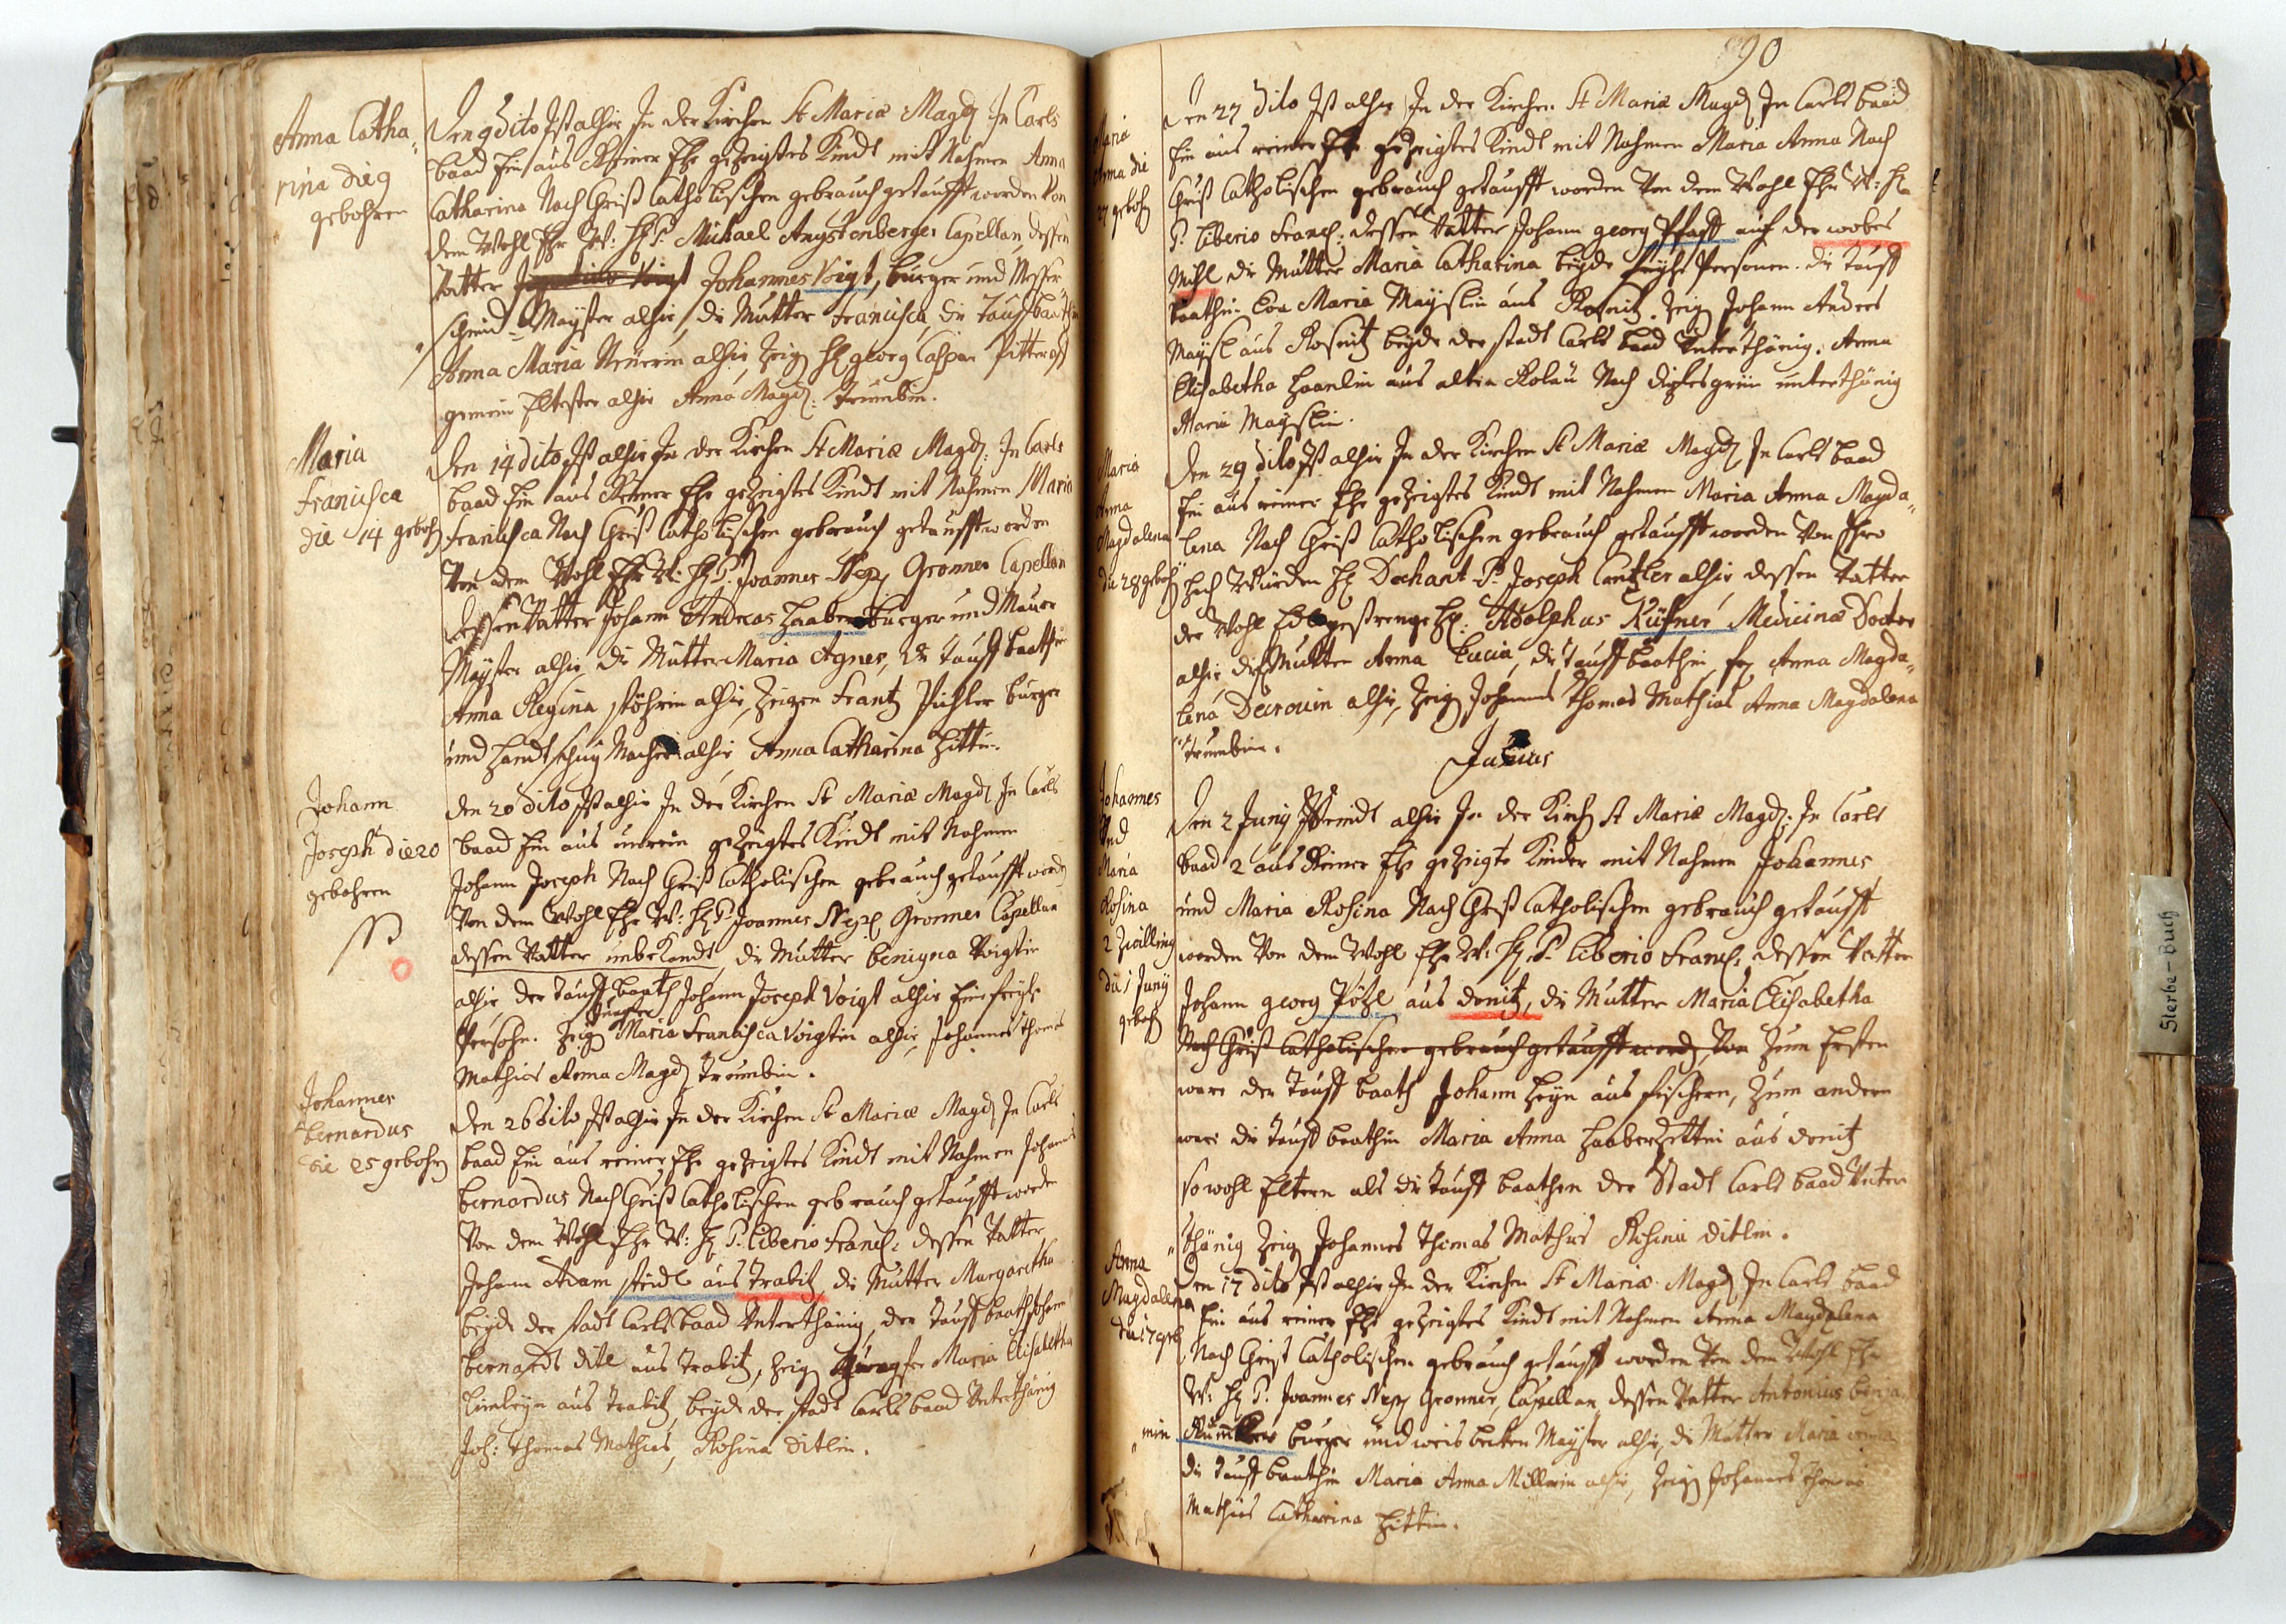 Anna Catha=
rina die 9
gebohren
Den 9 dito Ist alhir In der Kirchen St Mariæ Magd: In Carls
baad Ein aus Reiner Ehe gezeigtes Kindt mit Nahmen Anna
Catharina Nach Christ Catholischen gebrauch getaufft worden Von
dem Wohl Ehr W: H: P. Michael Angstenberger Capellan dessen
Vatter Johannes Voigt, burger und Messer
schmid Mayster alhir, die Mutter Francisca, die Tauffbaathin
Anna Maria alhir, Zeig H: georg Caspar
gemein Eltester alhir Anna Magd: Trumbin.
Maria
Francisca
die 14 gebohr
Den 14 dito Ist alhir In der Kirchen St Mariæ Magd: In Carls
baad Ein aus Reiner Ehe gezeigtes Kindt mit Nahmen Maria
Francisca Nach Christ Catholischen gebrauch getaufft worden
Von dem Wohl Ehr W: H: P. Joannes Nep: Gronner Capellan
dessen Vatter Johann Andreas burger und Maurer
Mayster alhir, die Mutter Maria Agnes, die Tauff baathin
Anna Regina alhir, Zeigen Frantz Pichler burger
und Handtschug Macher alhir Anna Catharina Zittin.
Johann
Joseph die 20
gebohren
Den 20 dito Ist alhir In der Kirchen St Mariæ Magd: In Carls
baad Ein aus unrein gezeigtes Kindt mit Nahmen
Johann Joseph Nach Christ Catholischen gebrauch getaufft word:
Von dem Wohl Ehr W: H: P. Joannes Nep: Gronner Capellan
dessen Vatter unbekandt, die Mutter benigna Voigtin
alhir, der Tauff baath Johann Joseph Voigt alhir Eine freyhe
Persohn. Zeig Jungfer Maria Francisca Voigtin alhir, Johannes Thomas
Mathias Anna Magd: Trumbin.
Johannes
bernardus
die 25 gebohr
Den 26 dito Ist alhir In der Kirchen St Mariæ Magd: In Carls
baad Ein aus reiner Ehe gezeigtes Kindt mit Nahmen Johannes
bernardus Nach Christ Catholischen gebrauch getaufft worden
Von dem Wohl Ehr W: H: P. Liberio Franc: dessen Vatter
Johann Adam Steidl aus Trabitz, die Mutter Margaretha
beyde der stadt Carls baad Unterthänig, der Tauff baath Johann
bernardt ditl aus Trabitz, Zeig Jungfer Maria Elisabetha
aus Trabitz, beyde der stadt Carls baad Unterthänig
Joh: Thomas Mathias, Rosina Ditlin.
90
Maria
Anna die
27 geboh
Den 27 dito Ist alhir In der Kirchen St Mariæ Magd: In Carls baad
Ein aus reiner Ehe gezeigtes Kindt mit Nahmen Maria Anna Nach
Christ Catholischen gebrauch getaufft worden Von dem Wohl Ehr W: H:
P. Liberio Franc: dessen Vatter Johann georg Pfaff auf der wobes
Mihl die Mutter Maria Catharina beyde freyhe Personen. die Tauff
baathin Eva Maria Mayslin aus Rosnitz. Zeig Johann Andres
Maysl aus Rosnitz beyde der stadt Carls baad Unterthänig. Anna
Elisabetha aus alten Rolau Nach unterthänig
Maria Mayslin.
Maria
Anna
Magdalena
die 28 geboh
Den 29 dito Ist alhir In der Kirchen St Mariæ Magd: In Carls baad
Ein aus reiner Ehe gezeigtes Kindt mit Nahmen Maria Anna Magda=
lena Nach Christ Catholischen gebrauch getaufft worden Von Ihro
Hoch Würden H: Dechant P. Joseph Cantzler alhir dessen Vatter
der Wohl Edlgestrenge H: Adolphus Küfner Medicinæ Doctor
alhir die Mutter Anna Lucia, die Tauff baathin fr: Anna Magda=
lena Decrouin alhir, Zeig Johannes Thomas Mathias Anna Magdalena
Trumbin.
Junius
Johannes
Und
Maria
Rosina
2 Zwilling
die 1 Juny
geboh
Den 2 Juny seindt alhir In der Kirch St Mariæ Magd: In Carls
baad 2 aus Reiner Ehe gezeigte Kinder mit Nahmen Johannes
und Maria Rosina Nach Christ Catholischen gebrauch getaufft
worden Von dem Wohl Ehr W: H: P. Liberio Franc: dessen Vatter
Johann georg Pötzl aus donitz, die Mutter Maria Elisabetha
Nach Christ Catholischen gebrauch getaufft word: Von Zum Ersten
ware der Tauff baath Johann Heyn aus fischern, Zum andern
ware die Tauff baathin Maria Anna aus donitz
sowohl Eltern als die Tauff baathen der Stadt Carls baad Unter
thänig Zeig Johannes Thomas Mathias Rosina ditlin.
Anna
Magdalena
die 17 geb
Den 17 dito Ist alhir In der Kirchen St Mariæ Magd: In Carls baad
Ein aus reiner Ehe gezeigtes Kindt mit Nahmen Anna Magdalena
Nach Christ Catholischen gebrauch getaufft worden Von dem Wohl Ehr
W: H: P. Joannes Nep: Gronner, Capellan dessen Vatter Antonius benja=
min burger und weis becken Mayster alhir, die Mutter Maria
die Tauff baathin Maria Anna Millerin alhir, Zeig Johannes Thomas
Mathias Catharina Zittin.
Sterbe-Buch